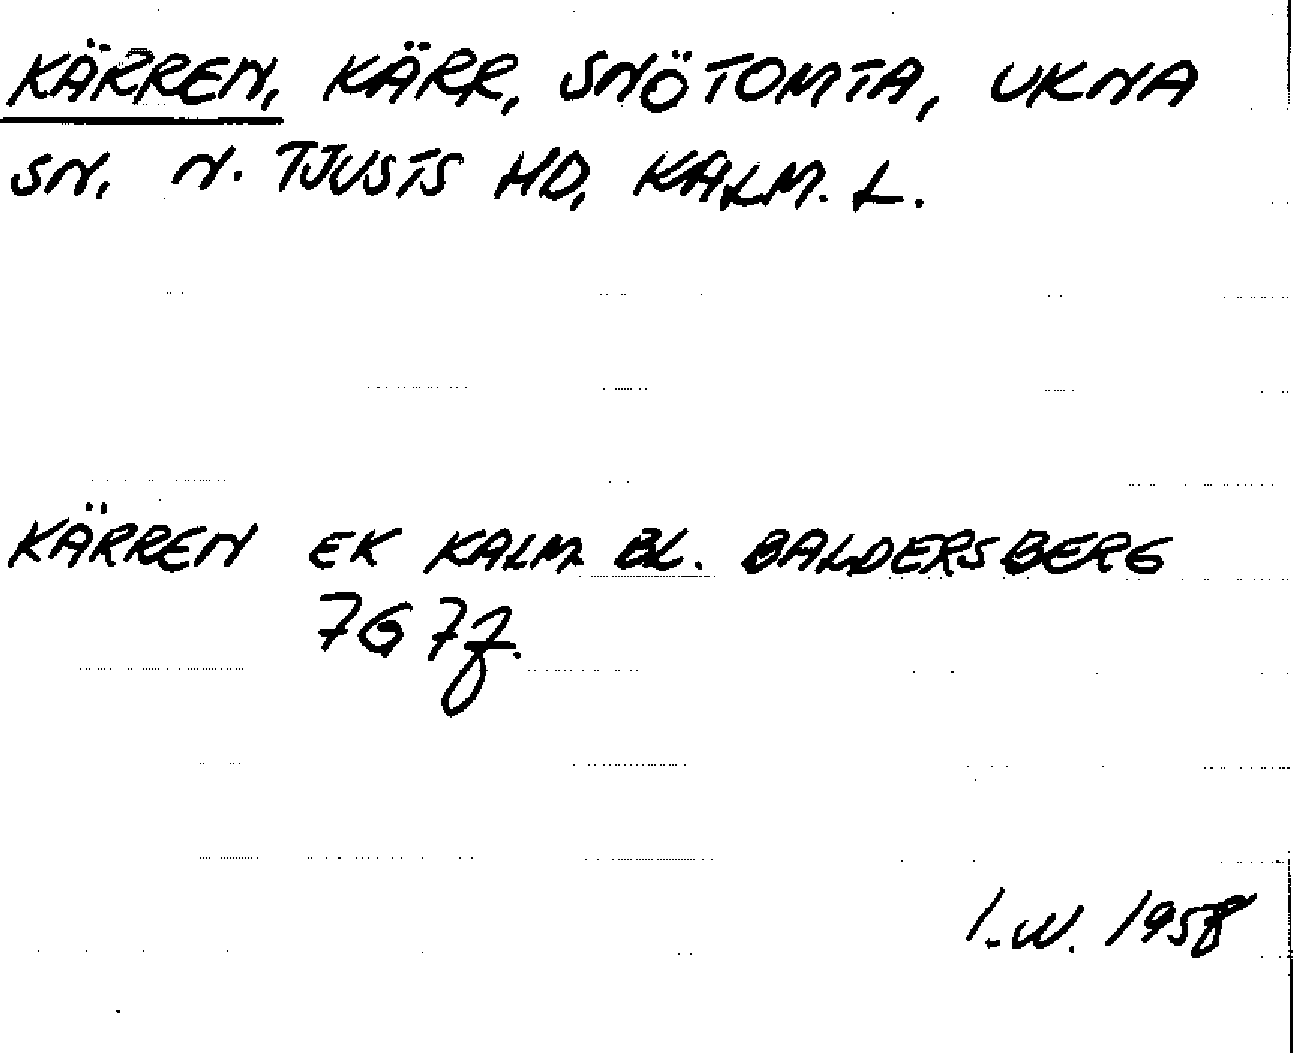 KÄRREN, KÄRR, SNÖTOMTA, UKNA
SN, N. TJUSTS HD, KALM. L.
KÄRREN EK KALM. BL. BALDERSBERG
7G 7f.
I.W. 1958